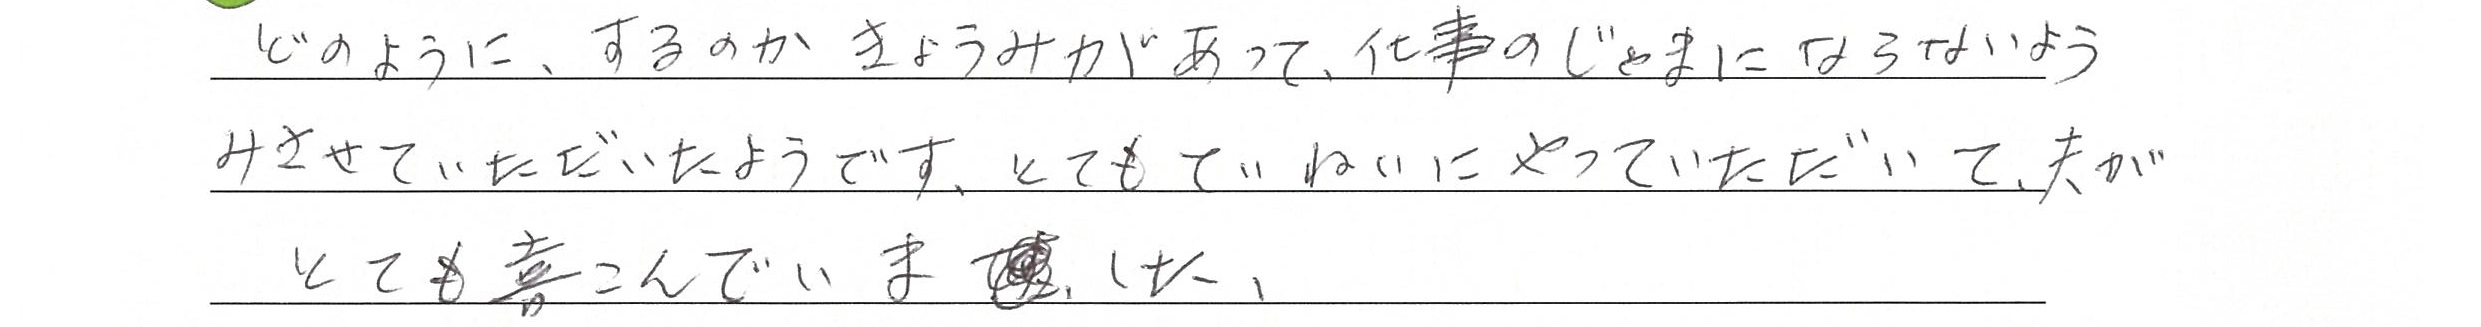 どのように、するのか きょうみがあって、仕事のじゃまにならないよう
みさせていただいたようです、とてもていねいにやっていただいて、夫が
とても喜こんでいました、